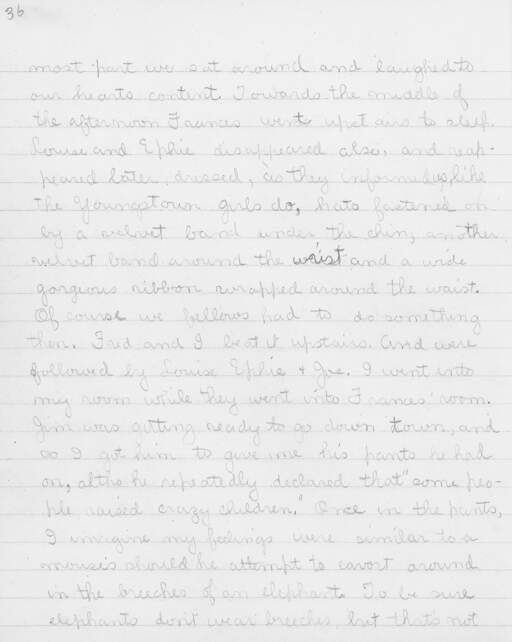 36
most part we sat around and laughed to
our hearts content. Towards the middle of
the afternoon Frances went upstairs to sleep.
Louise and Ephie disappeared also, and reap-
peared later dressed, as they informed us, like
the Youngstown girls do, hats fastened on
by a velvet band under the chin, another
velvet band around the waist and a wide
gorgeous ribbon wrapped around the waist.
Of course we fellows had to do something
then. Fred and I beat it upstairs. And were
followed by Louise Ephie + Joe. I went into
my room while they went into Frances' room.
Jim was getting ready to go down town, and
so I got him to give me his pants he had
on, altho he repeatedly declared that "some peo-
ple raised crazy children." Once in the pants,
I imagine my feelings were similar to a
mouse's should he attempt to cavort around
in the breeches of an elephant. To be sure
elephants don't wear breeches, but that's not